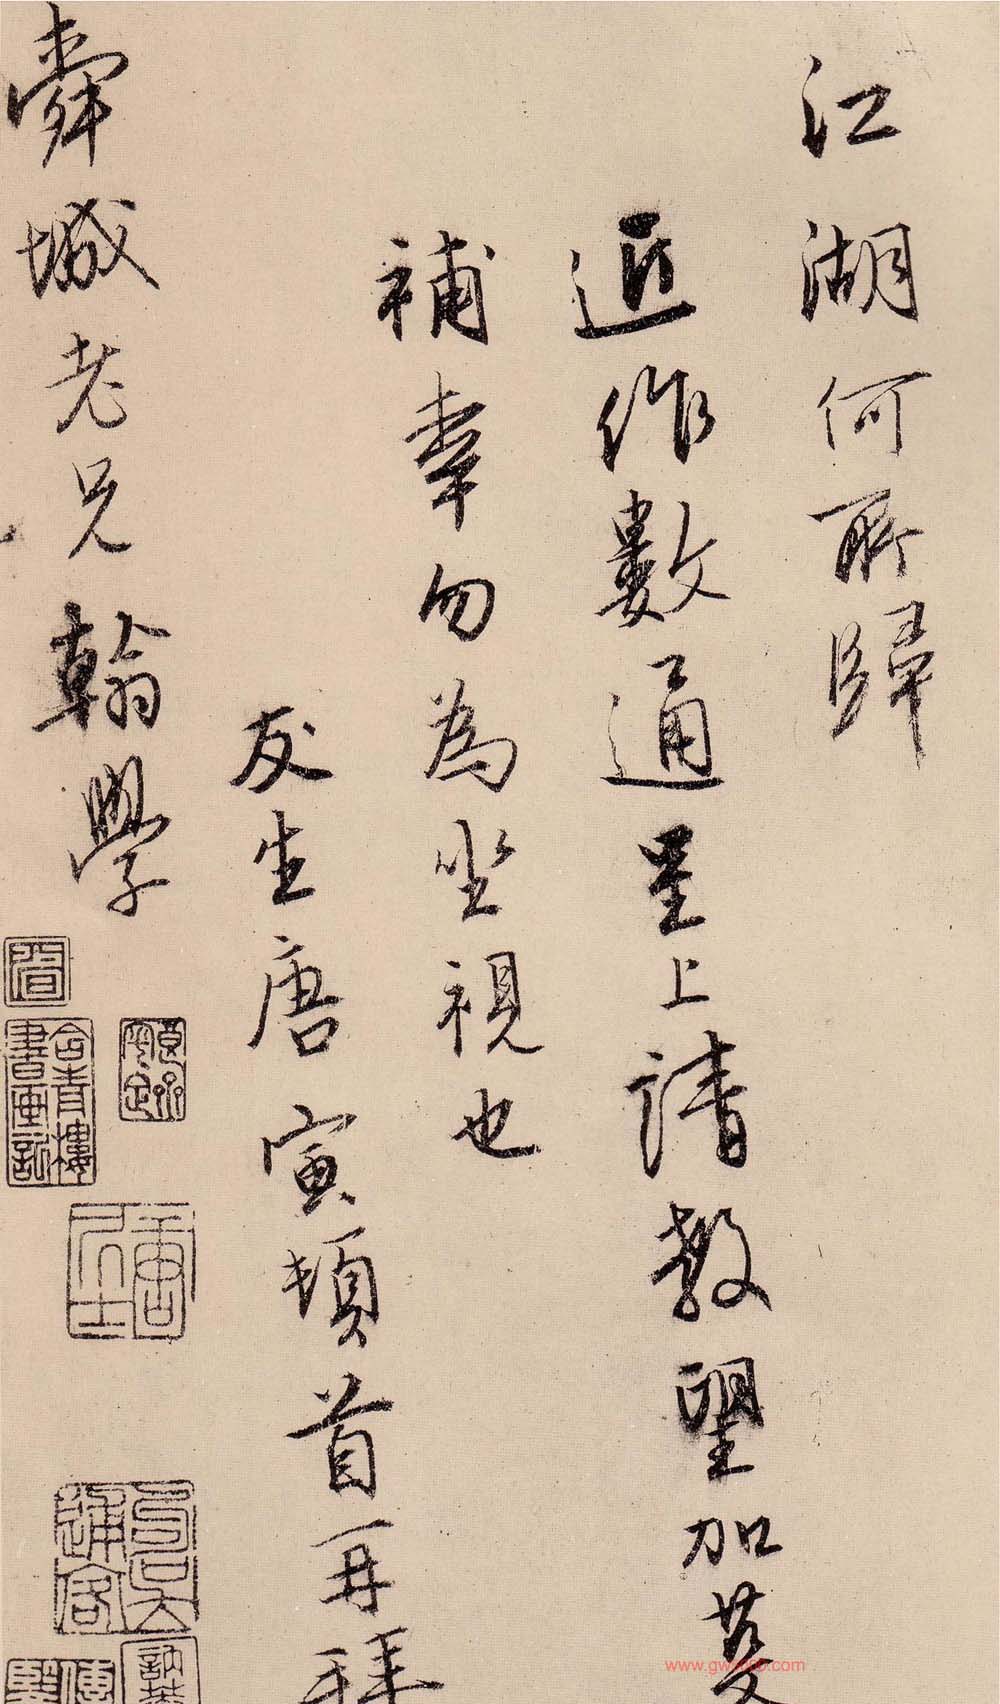 江湖何所歸
近作數通呈上請教望加芟
補幸勿為坐視也
友生唐寅頓首再拜
舜城老兄翰學
含青樓書畫記
唐居士